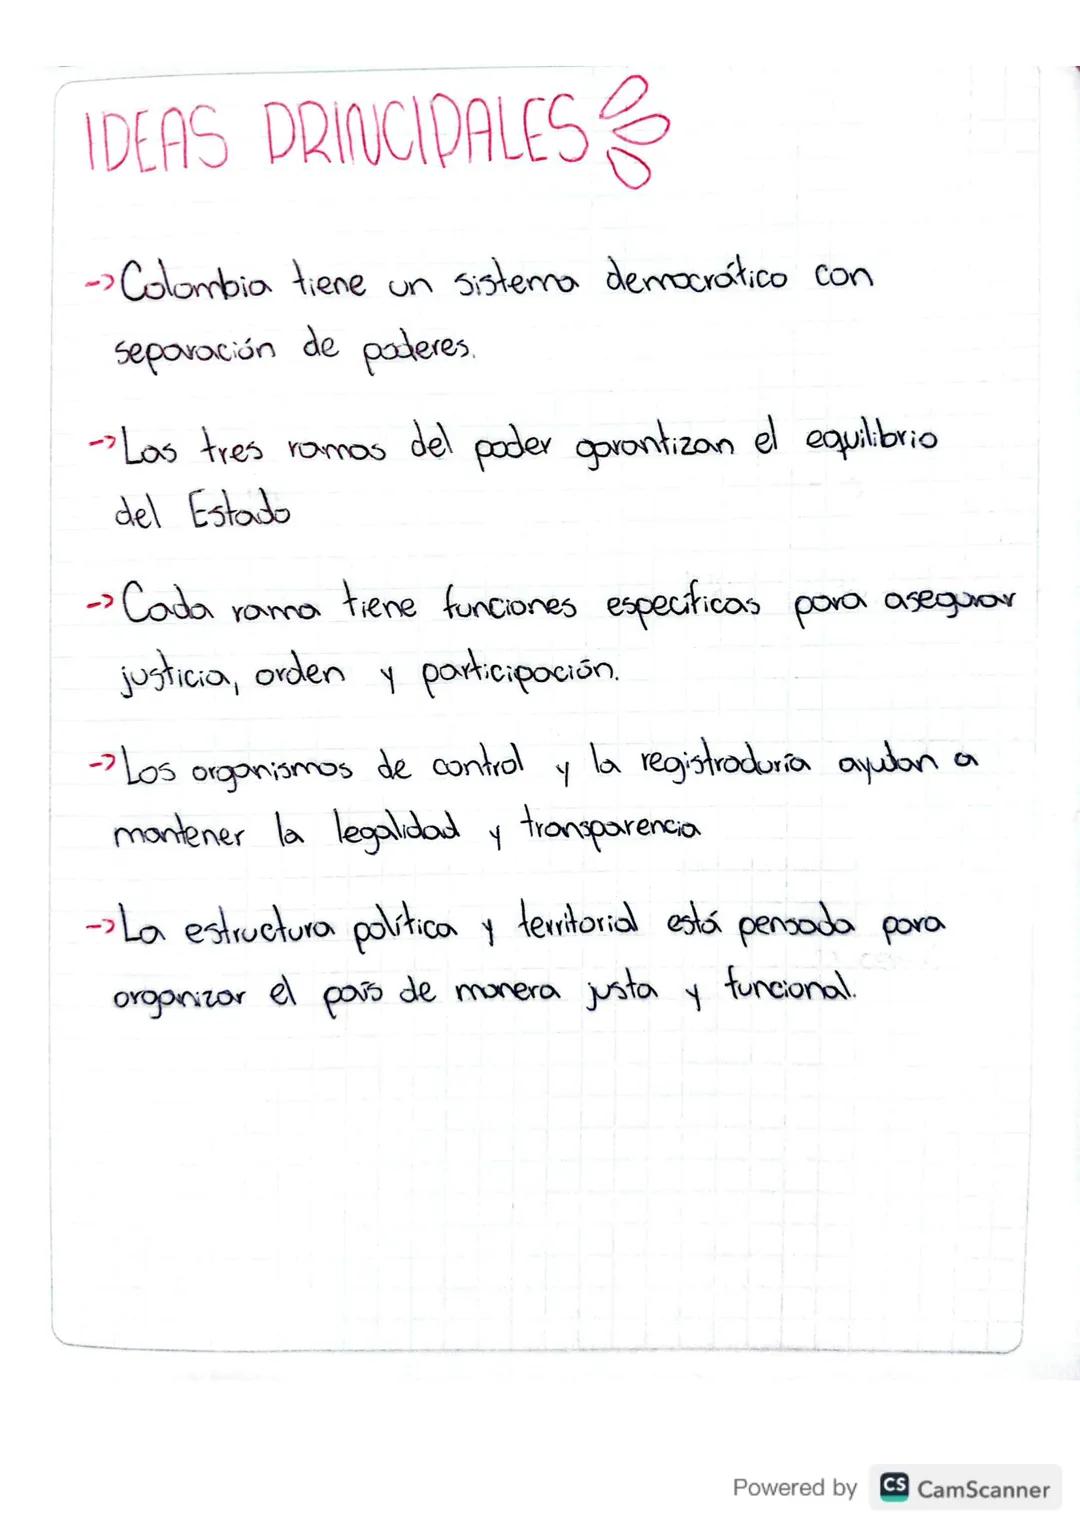 IDEAS PRINCIPALES
-> Colombia tiene un sistema democrático con
separación de poderes.
-> Las tres ramas del poder garantizan el equilibrio
del Estado
-> Cada rama tiene funciones específicas para asegurar
justicia, orden y participación.
-> Los organismos de control y la registraduría ayudan a
mantener la legalidad y transparencia
-> La estructura política y territorial está pensada para
organizar el país de manera justa y funcional.
Powered by CS CamScanner